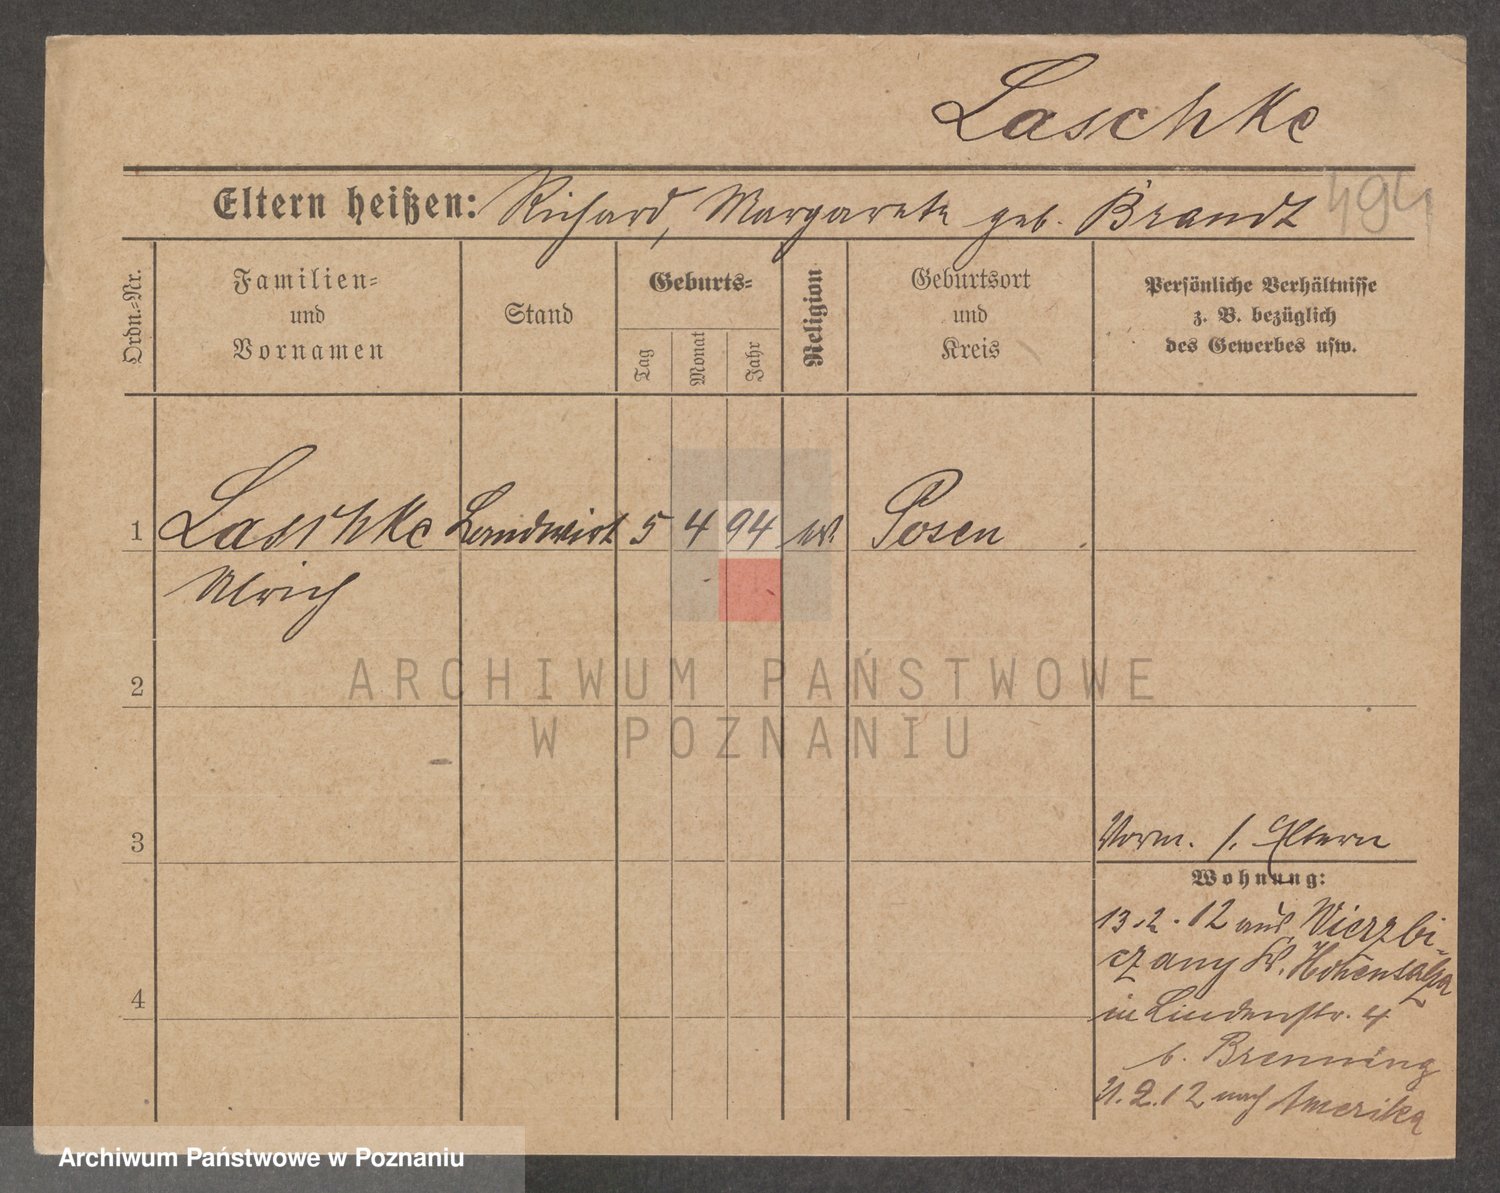 Laschke
Eltern heißen: Richard, Margarete geb. Brandt
494
Ordn.-Nr.
Familien- und Vornamen
Stand
Geburts-
Tag
Monat
Jahr
Religion
Geburtsort und Kreis
Persönliche Verhältnisse
z. B. bezüglich
des Gewerbes usw.
1 Laschke Landwirt 5 4 94 ev. Posen
Ulrich
2
3
4
Vorm. s. Eltern
Wohnung:
13.2.12 aus Wierzbi-
czany Kr. Hohensalza
in Lindenstr. 4
b. Brenning
21.2.12 nach Amerika
ARCHIWUM PAŃSTWOWE
W POZNANIU
Archiwum Państwowe w Poznaniu